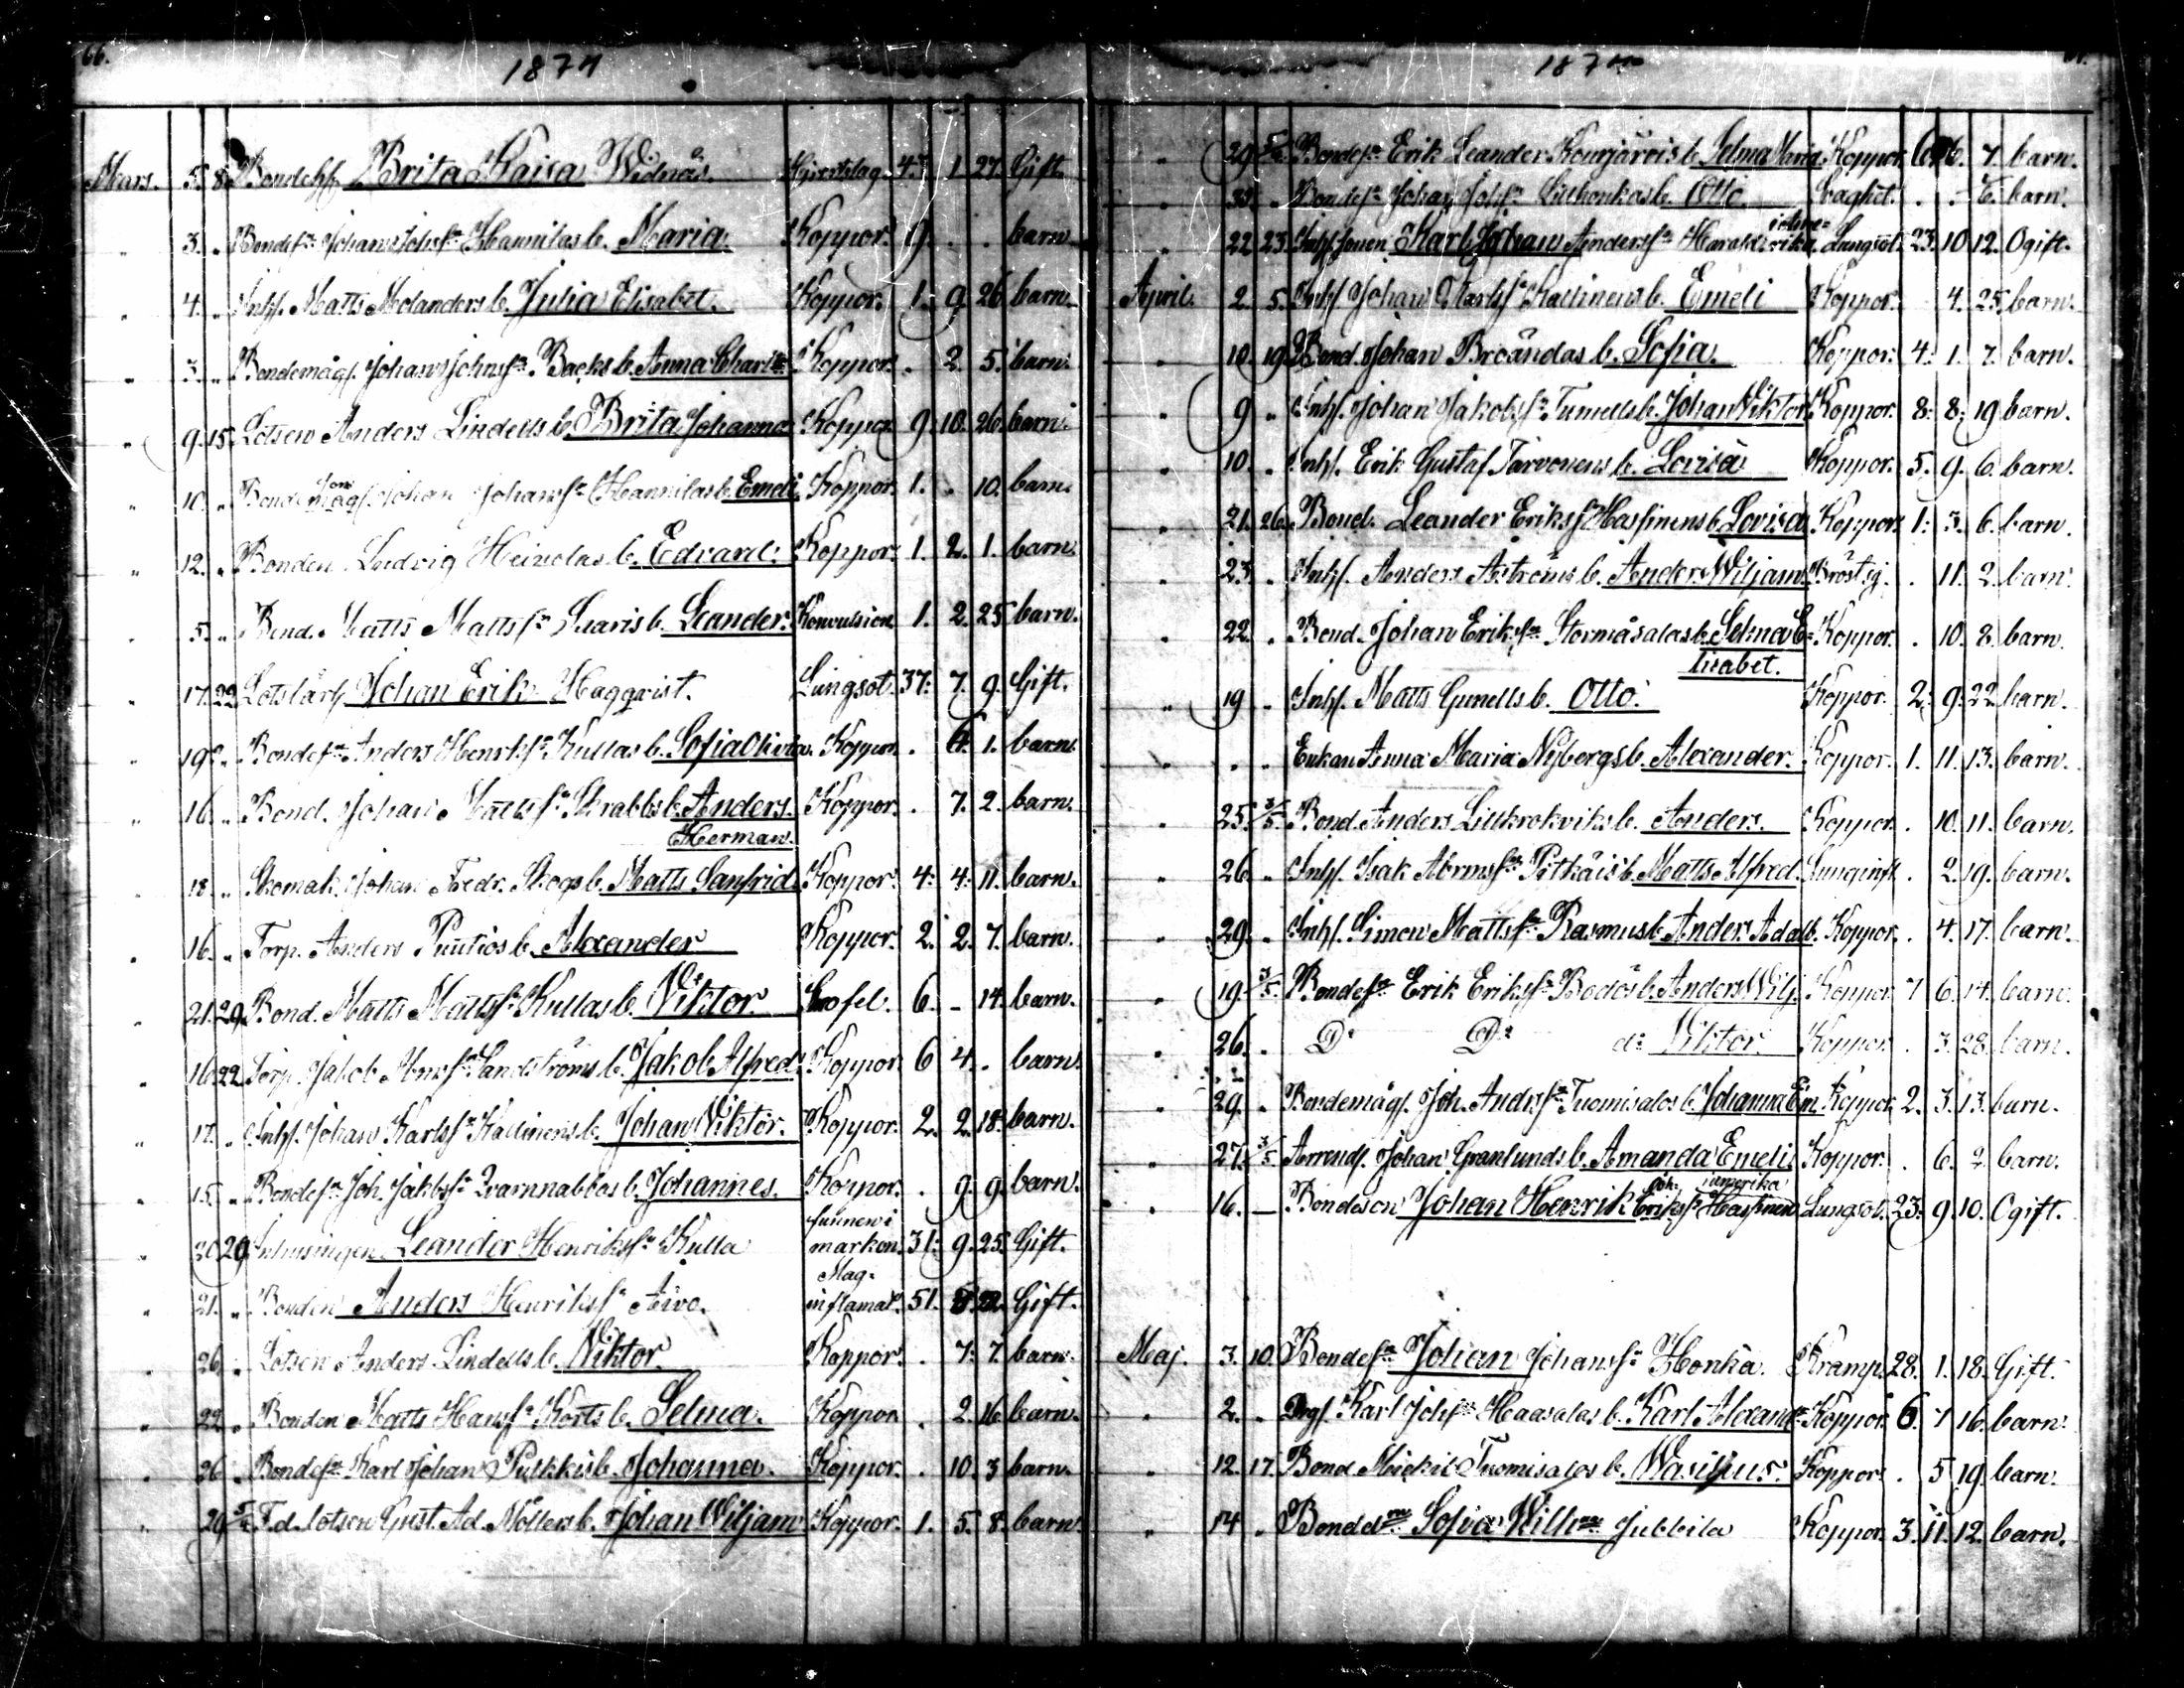 66.
1874
Mars. 5. 8. Brita Kaisa Widnäs. 1. 27. Gift.
" 3. " Bondes. Johans Johs. Hannilas b. Maria. Koppor. 9. . . barn
" 4. " Inhs. Matts Molanders b. Julia Elisabet. Koppor. 1. 9. 26. barn.
" 3. " Bondemågs. Johans Johns. Backs b. Anna Charl. Koppor. . 2. 5. barn.
" 9. 15. Lotsen Anders Lindells b. Brita Johanna Koppor 9. 10. 26. barn.
" 10. " Johan Johans. Hannilas b. Emeli. Koppor. 1. . 10. barn.
" 12. " Bonden Ludvig Heinolas b. Edvard. Koppor. 1. 2. 1. barn.
" 5. " Bond. Matts Matts. b. Leander. Konvulsion 1. 2. 25. barn.
" 17. 22. Lotslärl. Johan Erik Hagqvist. Lungsot. 37. 7. 9. Gift.
" 19. " Bondes. Anders Henrs. Kullas b. Sofia Olivia. Koppor. . 1. barn.
" 16. " Bond. Johan Matts. Skrabbs b. Anders. Koppor. . 7. 2. barn.
Herman.
" 18. " Skomak. Johan Fredr. Skogs b. Matts Sanfrid Koppor. 4. 4. 11. barn.
" 16. " Torp. Anders b. Alexander Koppor. 2. 2. 7. barn.
" 21. 29. Bond. Matts Matts. Kullas b. Viktor. 6. - 14. barn.
" 16. 22. Torp. Jakob Sandströms b. Jakob Alfred. Koppor. 6 4. . barn.
" 17. " Inhs. Johan Karls. Kallinens b. Johan Viktor. Koppor. 2. 2. 18. barn.
" 15. " Bondes. Joh. Jakbs. Qvarnnabbas b. Johannes. Koppor. . 9. 9. barn.
funnen i
" 20. 29 Inhysingen Leander Henriks. Kulla marken. 31. 9. 25. Gift.
Mag-
" 21. " Bonden Anders Henriks. Aivo. inflamat. 51. Gift.
" 26. " Lotsen Anders Lindells b. Viktor. Koppor. . 7. 7. barn.
" 22. " Bonden Matts Hans. Korts b. Selma. Koppor . 2. 16. barn.
" 26. " Bondes. Karl Johan Pulkkis b. Johanna. Koppor. . 10. 3 barn.
" 29. F.d. lotsen Gust. Ad. Möllers b. Johan Wiljam Koppor. 1. 5. 8. barn.
1874
" 29. Bondes. Erik Leander b. Selma Maria. Koppor. 7. barn.
" " Bondes. Johan Johs. b. Otto. 6. barn.
" 22. 23. Karl Johan Anders. Lungsot. 23. 10. 12. Ogift.
April. 2. 5. Inhs. Johan Karls. Kallinens b. Emeli Koppor. 4. 25. barn.
" 10. 19. Bond. Johan Broändas b. Sofia. Koppor. 4. 1. 7. barn.
" 9 " Inhs. Johan Jakobs. Tunells b. Johan Viktor Koppor. 8. 8. 19. barn.
" 10. " Inhs. Erik Gustaf Tarvonens b. Lovisa Koppor. 5. 9. 6. barn.
" 21. 26. Bond. Leander Eriks. Hassinens b. Lovisa Koppor. 1. 3. 6. barn.
" 23. " Inhs. Anders Åströms b. Anders Wiljam. Bröstsj. . 11. 2. barn.
" 22. " Bond. Johan Eriks. Stormåsalas b. Selma E- Koppor. . 10. 8. barn.
lisabet.
" 19 " Inhs. Matts Gunells b. Otto. Koppor. 2. 9. 22. barn.
" " " Enkan Anna Maria Nybergs b. Alexander. Koppor. 1. 11. 13. barn.
" 25. 3/5. Bond. Anders Lillkrokviks b. Anders. Koppor. . 10. 11. barn.
" 26. " Inhs. Isak Abrms. Pitkäis b. Matts Alfred. Lunginfl. . 2. 19. barn.
" 29. " Inhs. Simon Matts. Rasmus b. Anders Adalb. Koppor. . 4. 17. barn.
" 19. 3/5. Bondes. Erik Eriks. Bodös b. Anders Wilj. Koppor. 7 6. 14. barn.
" 26. " D:o D:o d:o Viktor. Koppor. . 3. 28. barn.
" 29. " Bondemågs. Joh. Andrs. Tuomisalos b. Johanna Em. Koppor. 2. 3. 13. barn.
" 27. 3/5 Arrends. Johan Granlunds b. Amanda Emeli Koppor. . 6. 2. barn.
i amerika
" 16. — Bondeson Johan Henrik Eriks. Hassinen Lungsot. 23. 9. 10. Ogift.
Maj. 3. 10. Bondes. Johan Johans. Honka. Kramp. 28. 1. 18. Gift.
" 2. " Drgs. Karl Johs. Haasalas b. Karl Alexand. Koppor. 6. 7 16. barn.
" 12. 17. Bond. Mickel Tuomisalos b. Koppor. . 5. 19. barn.
" 14 " Bondd. Sofia Willh. Jubbila Koppor. 3. 11. 12. barn.